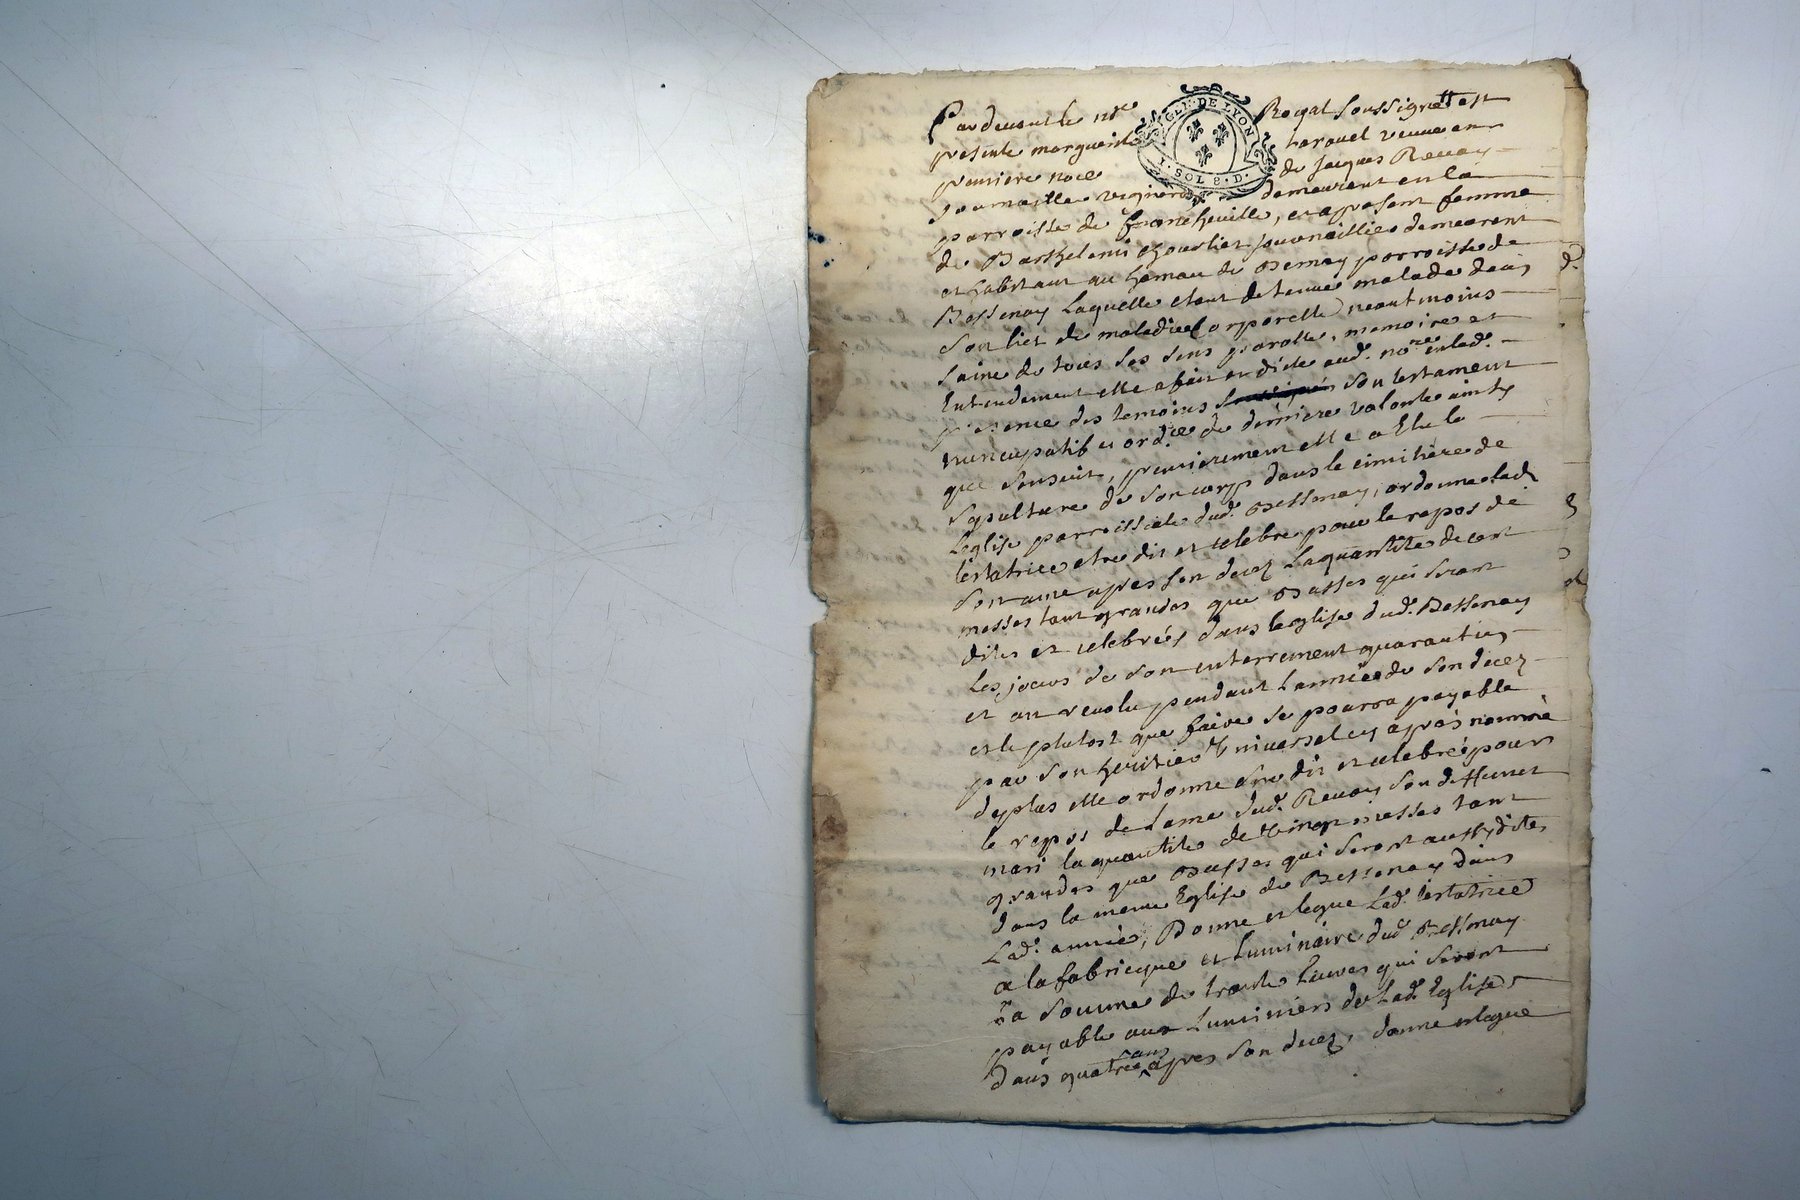 Pardevant le nre Royal soussignett est
GLI. DE LYON
1. SOL 8. D.
presente marguerite tarauel veuve en
premiere noce de Jacques Reuay
Journallier vigneron demeurant en la
parroisse de francheuille, et a present femme
de Barthelemi journaillier demeurent
et habitant au hameau de Bernay parroisse de
Bessenay Laquelle etant detenue malade dans
son lict de maladie Corporelle neantmoins
saine de tous ses sens parolle, memoire et
Entendement elle a fait et dicté aud. nore en lad.
presence des temoins son testament
nuncupatif et ordce de derniere volonte ainsy
que sensuit, premierement elle a Elu le
sepulture de son corp dans le cimitiere de
Leglise parroissiale dud. Bessenay, ordonne lad.
testatrice etre dit et celebre pour le repos de
son ame apres son decez la quantite de cent
messes tant grandes que Basses qui seront
dites et celebreés dans leglise dud. Bessenay
Les jours de son enterrement quarantin
et an revolu pendant Lannéé de son decez
et le plutost que faire se pourra payable
par son heritier Universel cy apres nommé
de plus elle ordonne etre dit et celebreé pour
le repos de Lame dud. Reuay son deffunct
mari la quantite de Vingt messes tant
grandes que Basses qui seront aussy dites
dans la meme Eglise de Bessenay dans
Lad. année, Donne et legue Lad. testatrice
a la fabricque et Luminaire dud. Bessenay
la somme de trente Livres qui seront
payable aux Luminiers de Lad. Eglise
dans quatre ans apres son decez, donne et legue